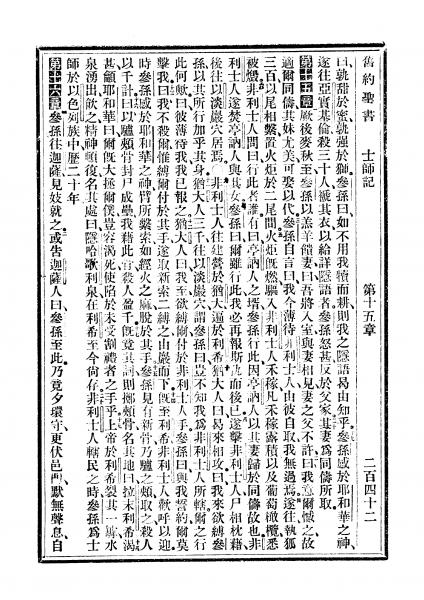 舊約聖書 士師記 第十五章 二百四十二
曰孰甜於蜜孰強於獅參孫曰如不用我犢而耕則我之隱語曷由知乎參孫感於耶和華之神
遂往亞實基倫殺三十人褫其衣以給詳隱語者參孫怒甚反於父家其妻爲同儔所取
第十五章 厥後麥秋至參孫以羔羊饋妻曰吾將入室與妻相見妻之父不許曰我意爾憾之故
適爾同儔其妹尤美可娶以代參孫自言曰我今薄待非利士人由彼自取我無過焉遂往執狐
三百以尾相繫置火炬於二尾間火炬旣燃驅入非利士人禾稼凡禾稼露積以及葡萄橄欖悉
被燬非利士人問曰行此者誰有曰亭訥人之壻參孫行此因亭訥人以其妻歸於同儔故也非
利士人遂焚亭訥人與其女參孫曰爾雖行此我必再報斯仇而後已遂擊非利士人尸相枕藉
後往以淡巖穴居焉非利士人往建營於猶大遍於利希猶大人曰曷來相攻曰我來欲縛參
孫以其所行加乎其身猶大人三千往以淡巖穴謂參孫曰豈不知我爲非利士人所轄爾之行
此何歟曰彼薄待我我已報之猶大人曰我至欲縛爾付於非利士人手參孫曰與我誓約爾莫
擊我曰我不殺爾惟縛爾付於其手遂取新索二縛之由巖而下旣至利希非利士人歡呼以迎
時參孫感於耶和華之神臂所縈索如經火之麻脫於其手參孫見有新骨乃驢之頰取之殺人
以千計曰以驢頰骨封尸成壘我藉此言殺人盈千旣竟其詞則擲頰骨名其地曰拉末利希渴
甚籲耶和華曰爾旣大拯爾僕豈容渴死使陷於未受割禮者之手乎上帝於利希裂其一坳水
泉湧出飲之精神頓復名其處曰隱哈歌利泉在利希至今尚存非利士人轄民之時參孫爲士
師於以色列族中歷二十年
第十六章 參孫往迦薩見妓就之或告迦薩人曰參孫至此乃竟夕環守更伏邑門默無聲息自